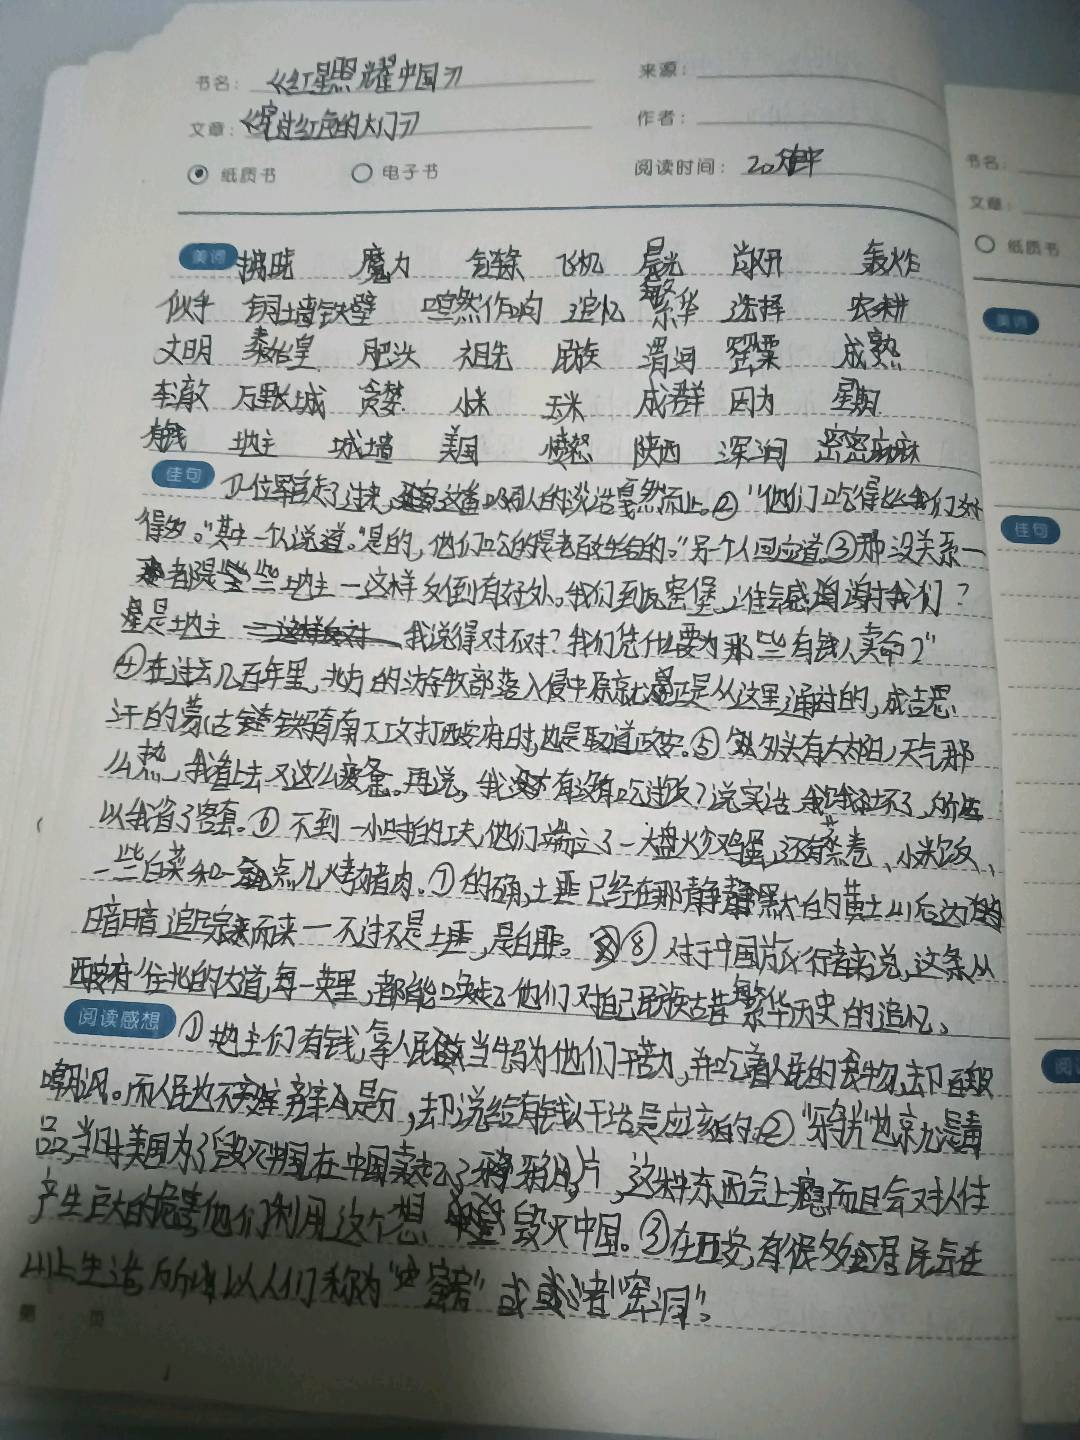 书名： 《红星照耀中国》 来源：
文章： 《穿过红色的大门》 作者：
纸质书 电子书 阅读时间： 20分钟
书名：
文章：
纸质书
美词 拂晓 魔力 链条 飞机 晨光 敞开 轰炸
似乎 铜墙铁壁 喧然作响 追忆 繁华 选择 农耕
文明 秦始皇 肥沃 祖先 民族 渭河 罂粟 成熟
李敦 万里长城 贪婪 小米 玉米 成群 因为 星期
有钱 地主 城墙 美国 愤怒 陕西 深涧 密密麻麻
佳句 ①一位军官走了过来，这番吸引人的谈话戛然而止。②“他们吃得比我们好
得多。”其中一个人说道。“是的，他们吃的是老百姓给的。”另一个人回应道。③那没关系一
都是些地主一这样反倒有好处。我们到瓦窑堡，谁会感谢我们？
是地主 我说得对不对？我们凭什么要为那些有钱人卖命？”
④在过去几百年里，北方的游牧部落入侵中原就是从这里通过的，成吉思
汗的蒙古铁骑南下攻打西安府时，也是取道西安。⑤外头有大太阳，天气那
么热，我看上去又这么疲惫。再说，我有没有吃过饭？说实话，我饿坏了，所
以我省了客套。⑥不到一小时的工夫，他们端立了一大盘火少鸡蛋，还有蒸卷、小米饭、
一些白菜和一点儿烤猪肉。⑦的确，土匪已经在那静静黑大的黄土山后边
暗暗追踪而来一不过不是土匪，是白匪。⑧对于中国旅行者来说，这条从
西安府往北的大道，每一英里，都能唤起他们对自己民族古老繁华历史的追忆。
阅读感想 ①地主们有钱，拿人民当牛马为他们干苦力，并吃着人民的食物，却百般
嘲讽。而人民也不，却说给有钱人干活是应该的。②“鸦片”也就是毒
品，当时美国为了毁灭中国在中国卖起了鸦片，这种东西会上瘾而且会对人体
产生巨大的危害他们利用这个想 毁灭中国。③在西安，有很多居民会在
山上生活所以人们称为“窑房”或者“窑洞”。
第 页
美词
佳句
阅读